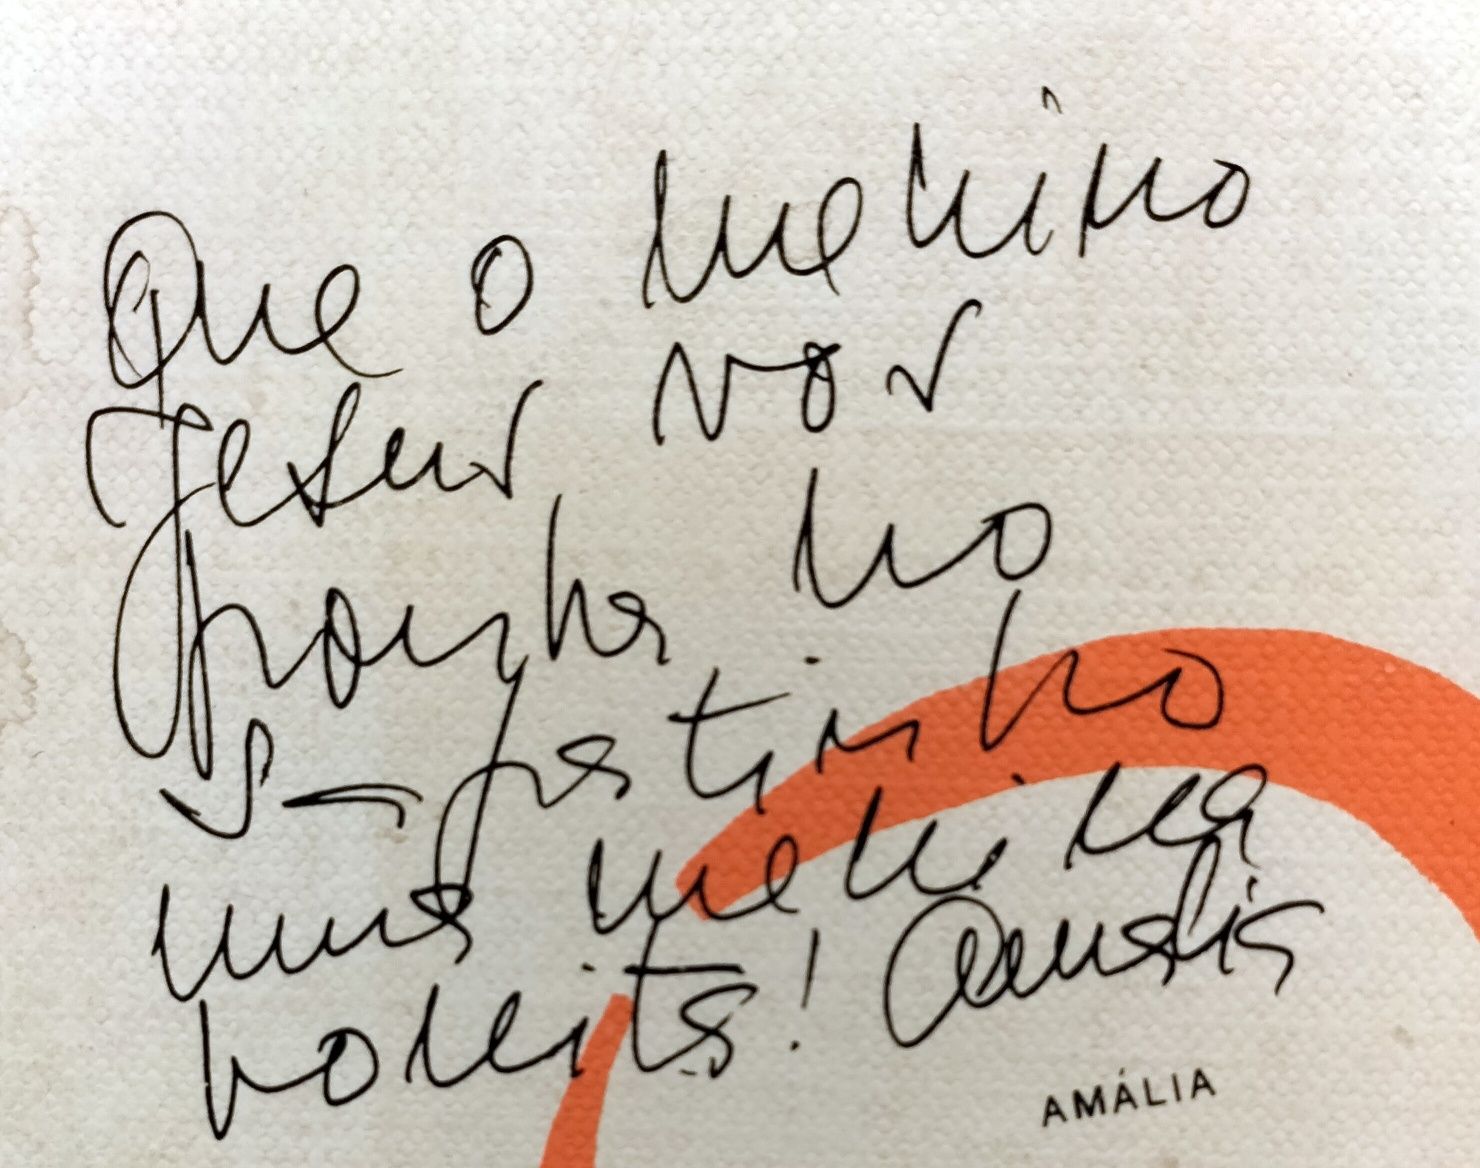 Que o menino
Jesus vos
ponha no
sapatinho
uma menina
bonita! Amália
AMÁLIA